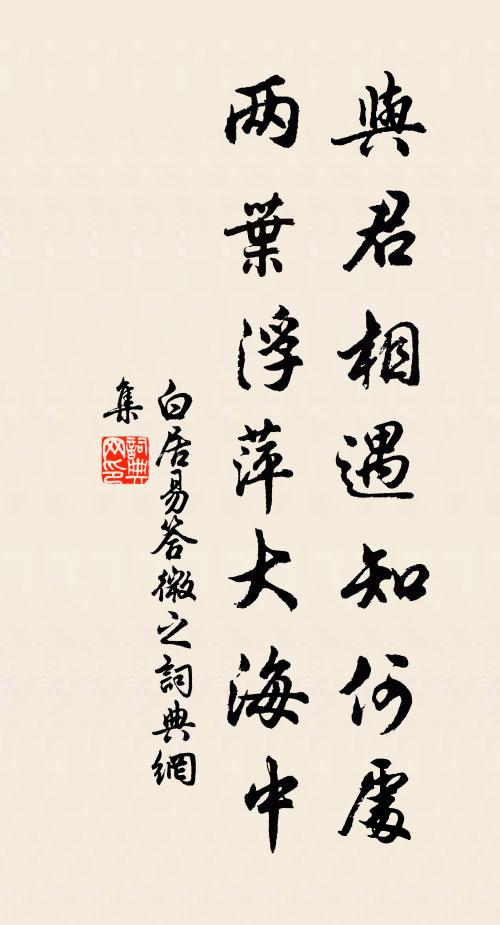 與君相遇知何處
两葉浮萍大海中
白居易答微之詞典網
集
詞典
网印